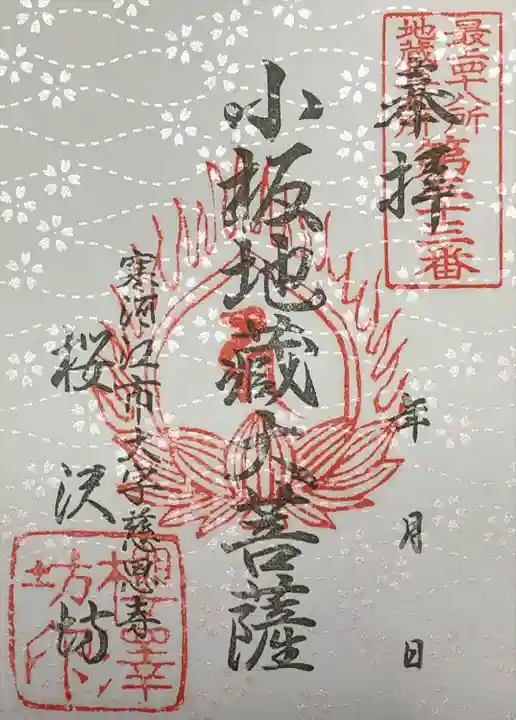 最上四十八所
地蔵
第三十三番
奉拝
年 月 日
小板地蔵大菩薩
寒河江市大字慈恩寺
桜沢坊